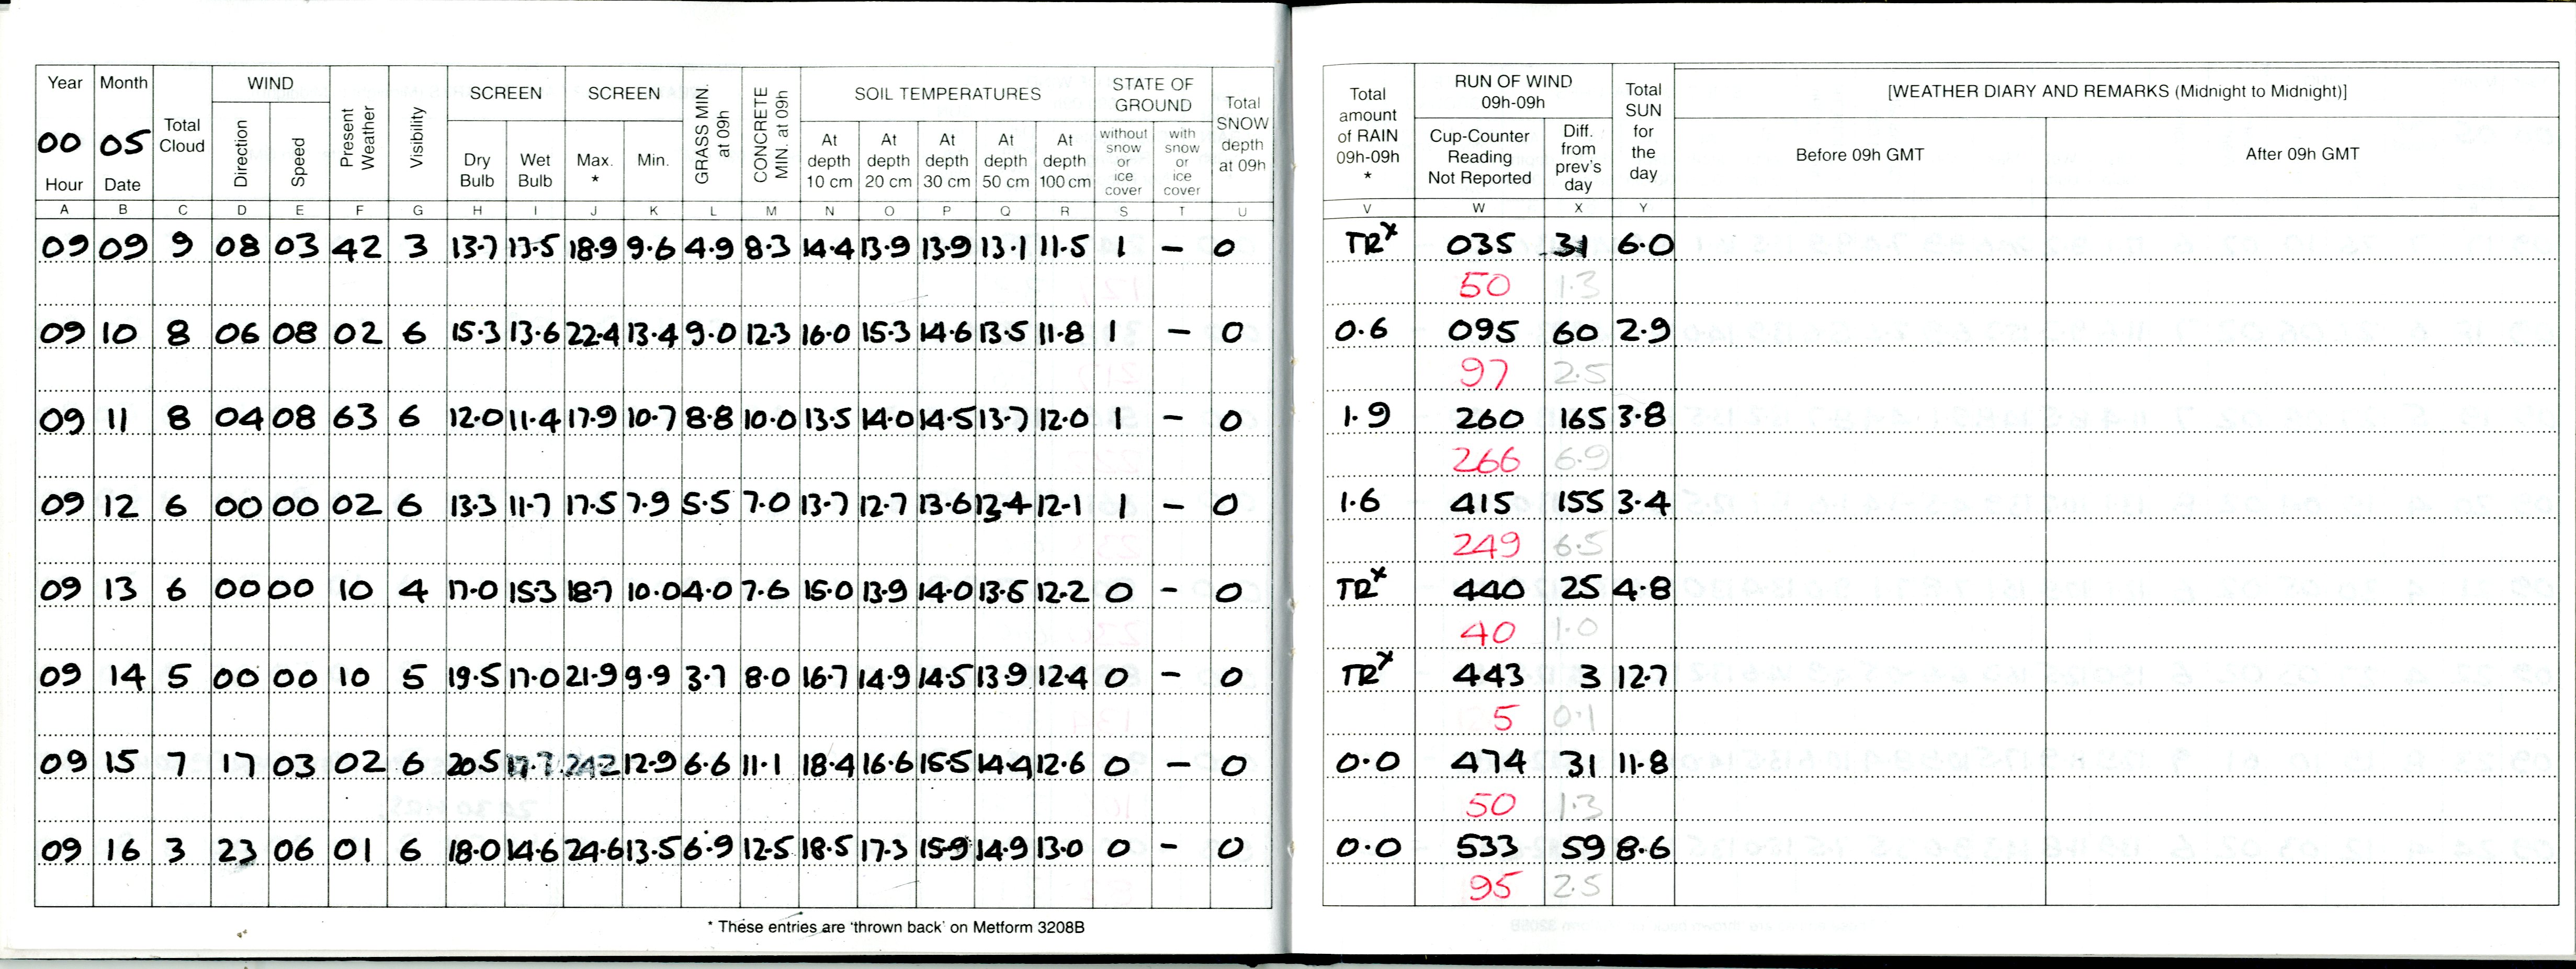 Year Month Total Cloud WIND Present Weather Visibility SCREEN SCREEN GRASS MIN. at 09h CONCRETE MIN. at 09h SOIL TEMPERATURES STATE OF GROUND Total SNOW depth at 09h
00 05 Direction Speed Dry Bulb Wet Bulb Max. * Min. At depth 10 cm At depth 20 cm At depth 30 cm At depth 50 cm At depth 100 cm without snow or ice cover with snow or ice cover
Hour Date
A B C D E F G H I J K L M N O P Q R S T U
09 09 9 08 03 42 3 13.7 13.5 18.9 9.6 4.9 8.3 14.4 13.9 13.9 13.1 11.5 1 – 0
09 10 8 06 08 02 6 15.3 13.6 22.4 13.4 9.0 12.3 16.0 15.3 14.6 13.5 11.8 1 – 0
09 11 8 04 08 63 6 12.0 11.4 17.9 10.7 8.8 10.0 13.5 14.0 14.5 13.7 12.0 1 – 0
09 12 6 00 00 02 6 13.3 11.7 17.5 7.9 5.5 7.0 13.7 12.7 13.6 13.4 12.1 1 – 0
09 13 6 00 00 10 4 17.0 15.3 18.7 10.0 4.0 7.6 15.0 13.9 14.0 13.5 12.2 0 – 0
09 14 5 00 00 10 5 19.5 17.0 21.9 9.9 3.7 8.0 16.7 14.9 14.5 13.9 12.4 0 – 0
09 15 7 17 03 02 6 20.5 17.7 24.2 12.9 6.6 11.1 18.4 16.6 15.5 14.4 12.6 0 – 0
09 16 3 23 06 01 6 18.0 14.6 24.6 13.5 6.9 12.5 18.5 17.3 15.9 14.9 13.0 0 – 0
* These entries are 'thrown back' on Metform 3208B
Total amount of RAIN 09h-09h * RUN OF WIND 09h-09h Total SUN for the day [WEATHER DIARY AND REMARKS (Midnight to Midnight)]
Cup-Counter Reading Not Reported Diff. from prev's day Before 09h GMT After 09h GMT
V W X Y
TRx 035 31 6.0
50 1.3
0.6 095 60 2.9
97 2.5
1.9 260 165 3.8
266 6.9
1.6 415 155 3.4
249 6.5
TRx 440 25 4.8
40 1.0
TRx 443 3 12.7
5 0.1
0.0 474 31 11.8
50 1.3
0.0 533 59 8.6
95 2.5